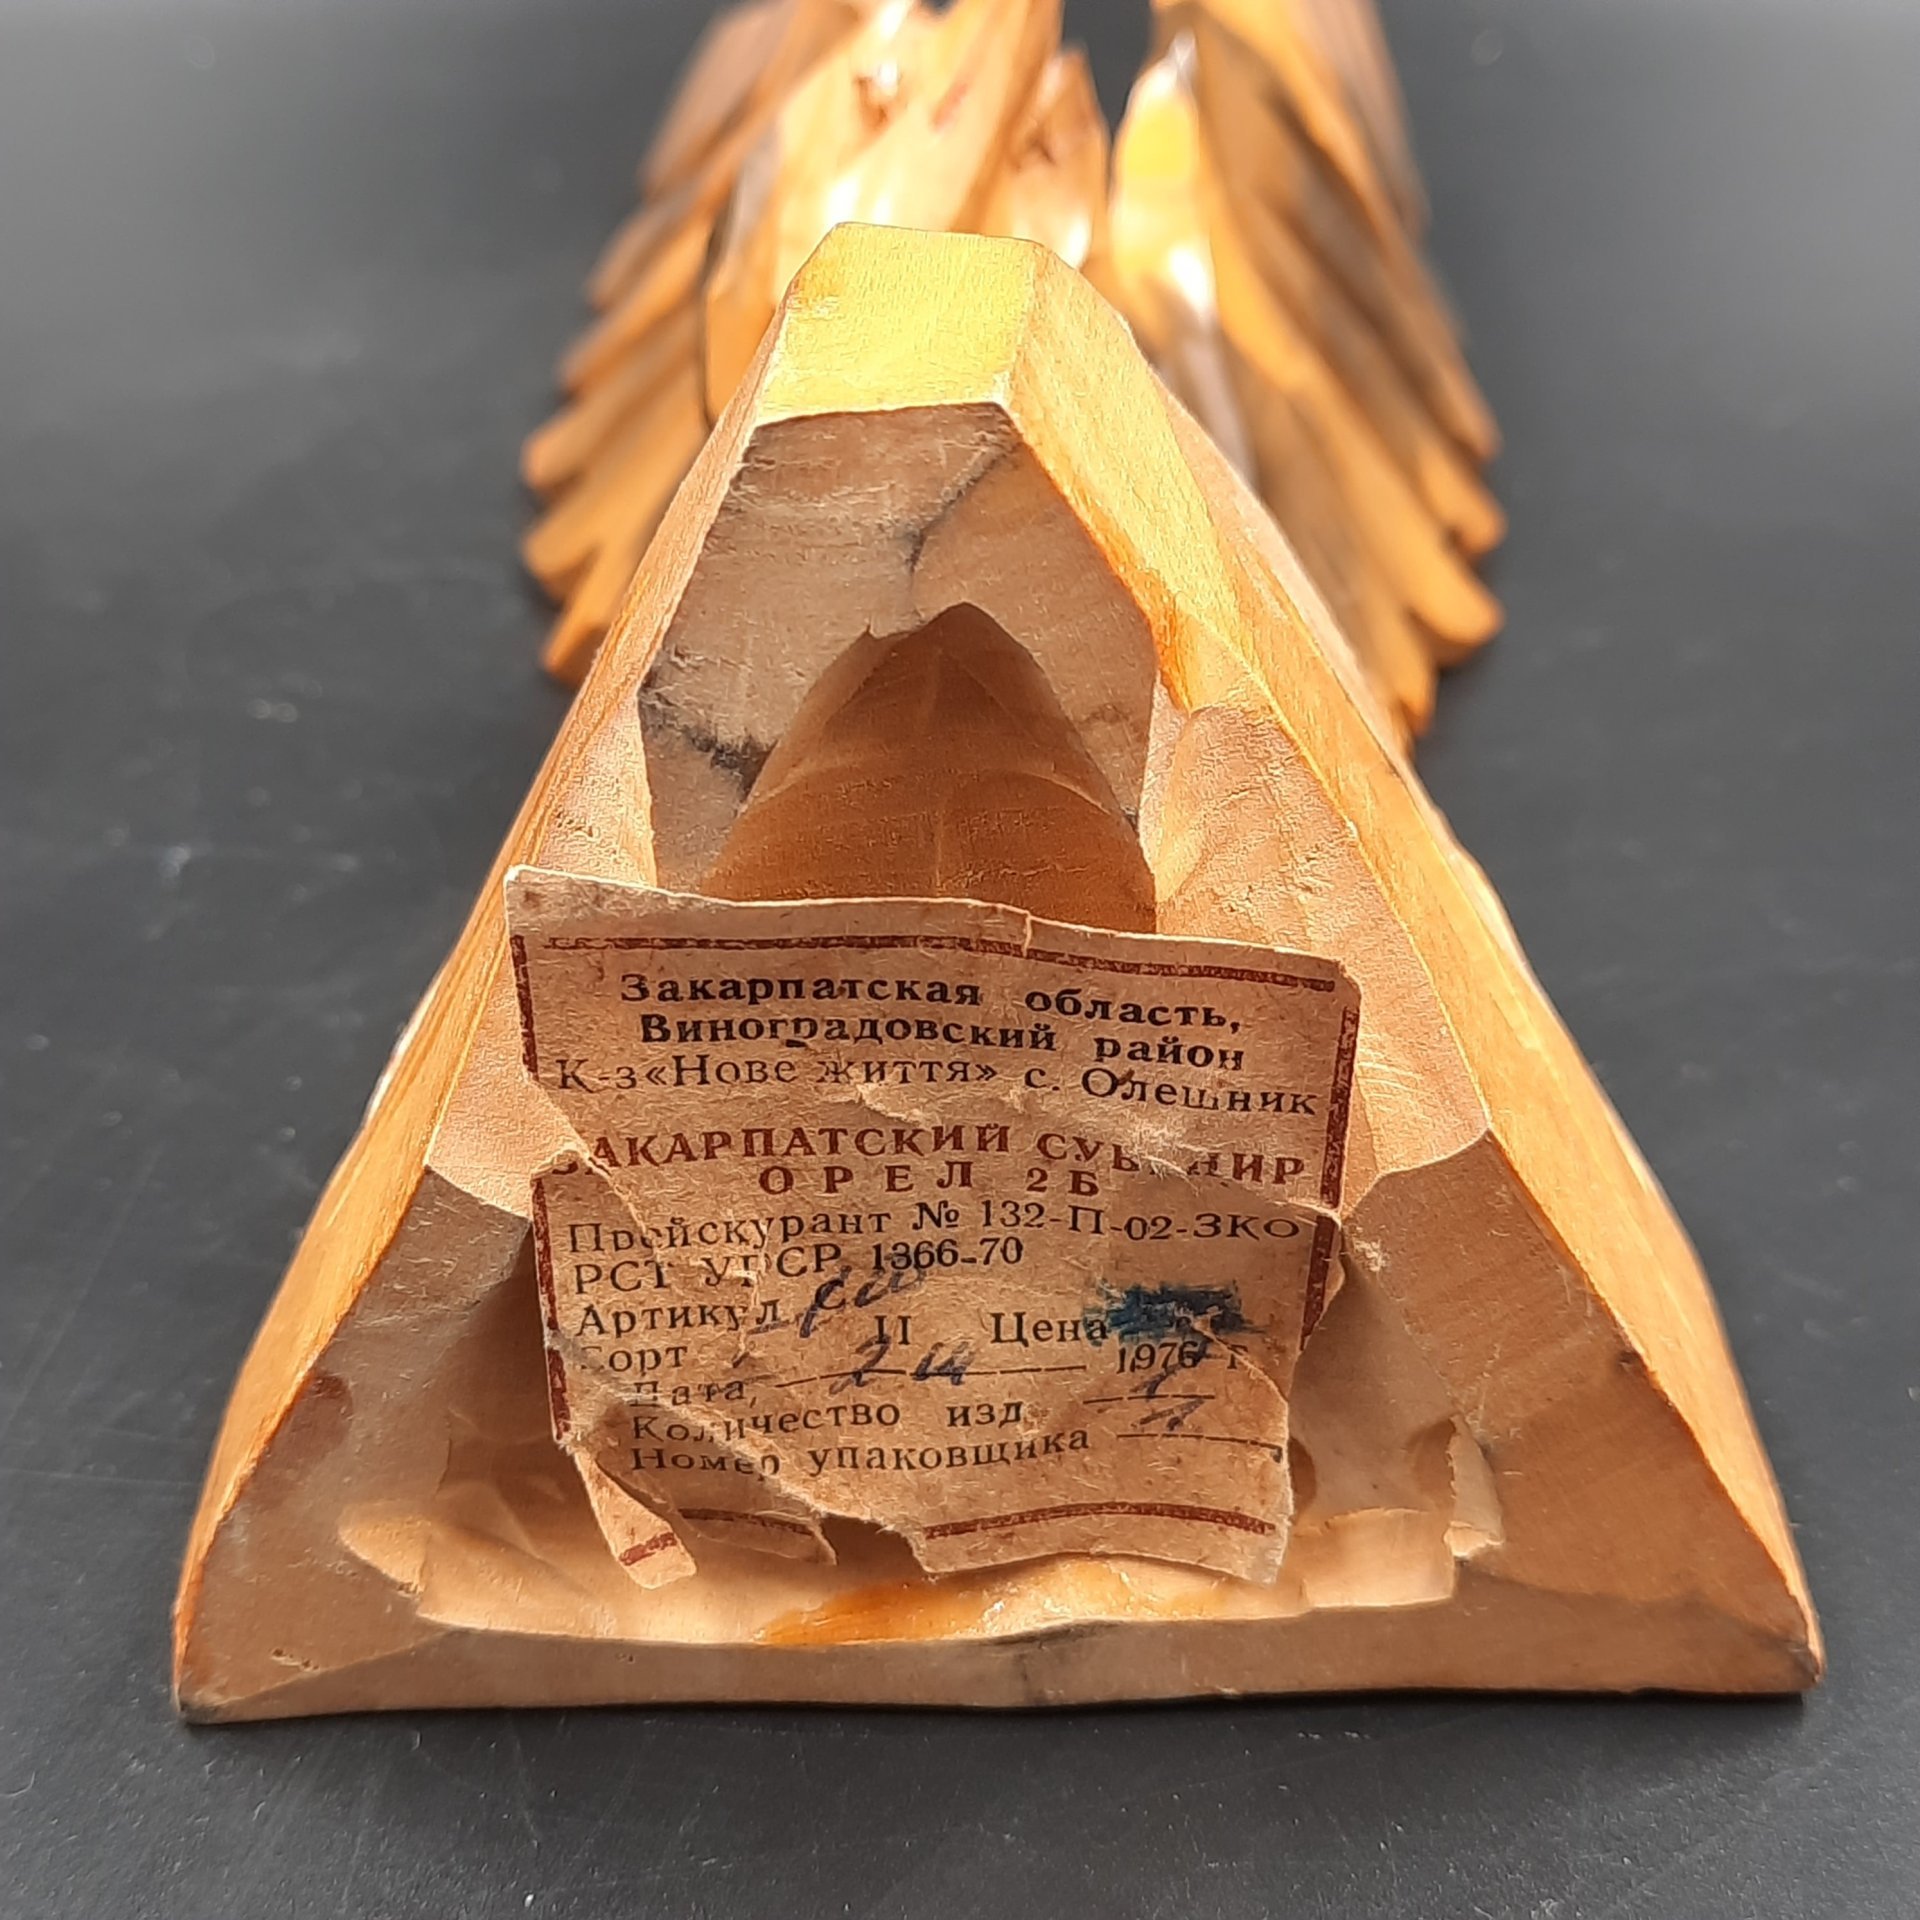 Закарпатская область,
Виноградовский район
К-з «Нове життя» с. Олешник
ЗАКАРПАТСКИЙ СУВЕНИР
ОРЕЛ 2Б
Прейскурант № 132-П-02-ЗКО
РСТ УРСР 1366-70
Артикул
Сорт II Цена
Дата, 1976 г
Количество изд.
Номер упаковщика